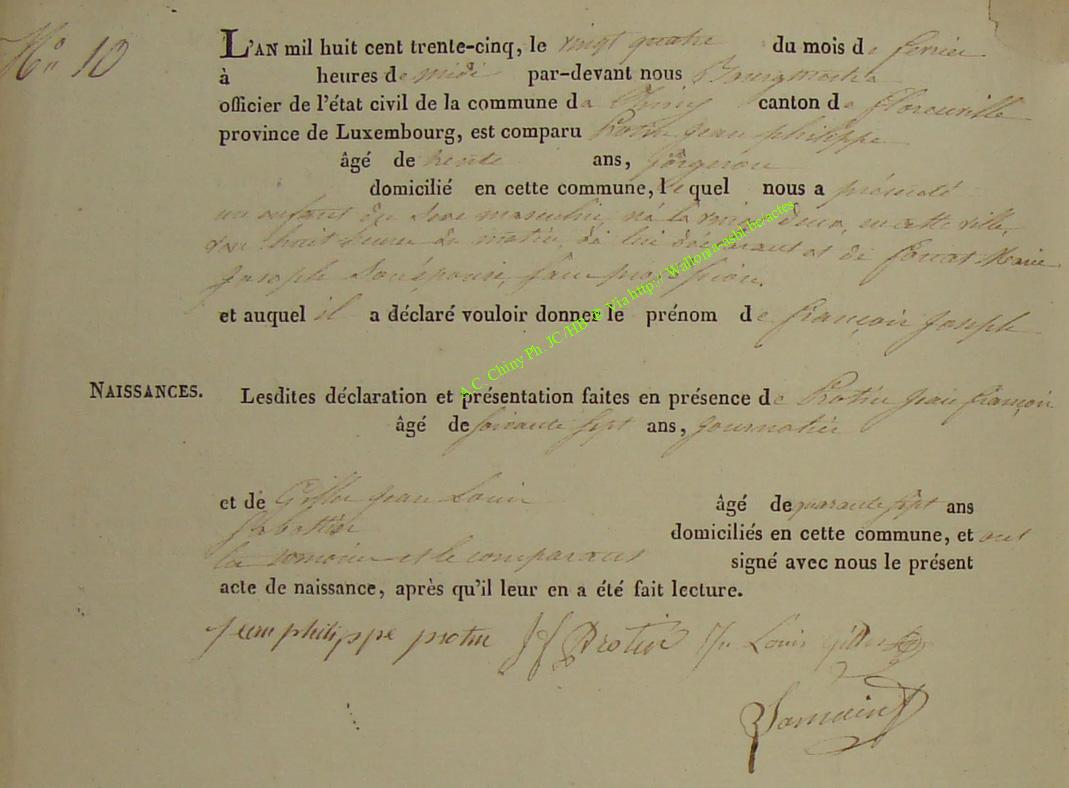 N° 10
L'AN mil huit cent trente-cinq, le vingt quatre du mois de fevrier
à heures de midi par-devant nous Bourgmestre
officier de l'état civil de la commune de Chiny canton de florenville
province de Luxembourg, est comparu Protin jean philippe
âgé de trente ans, forgeron
domicilié en cette commune, lequel nous a présenté
un enfant du sexe masculin, né le vingt deux, en cette ville,
huit heures du matin, de lui déclarant et de Marie
Joseph son épouse, sans profession.
et auquel il a déclaré vouloir donner le prénom de françois joseph
NAISSANCES.
Lesdites déclaration et présentation faites en présence de Protin jean françois
âgé de soixante sept ans, journalier
et de jean Louis âgé de quarante sept ans
sabottier domiciliés en cette commune, et ont
les temoins et le comparant signé avec nous le présent
acte de naissance, après qu'il leur en a été fait lecture.
jean philippe protin J f Protin Jn Louis
A.C. Chiny Ph. JC/HB © Via http://Wallonia-asbl.be/actes